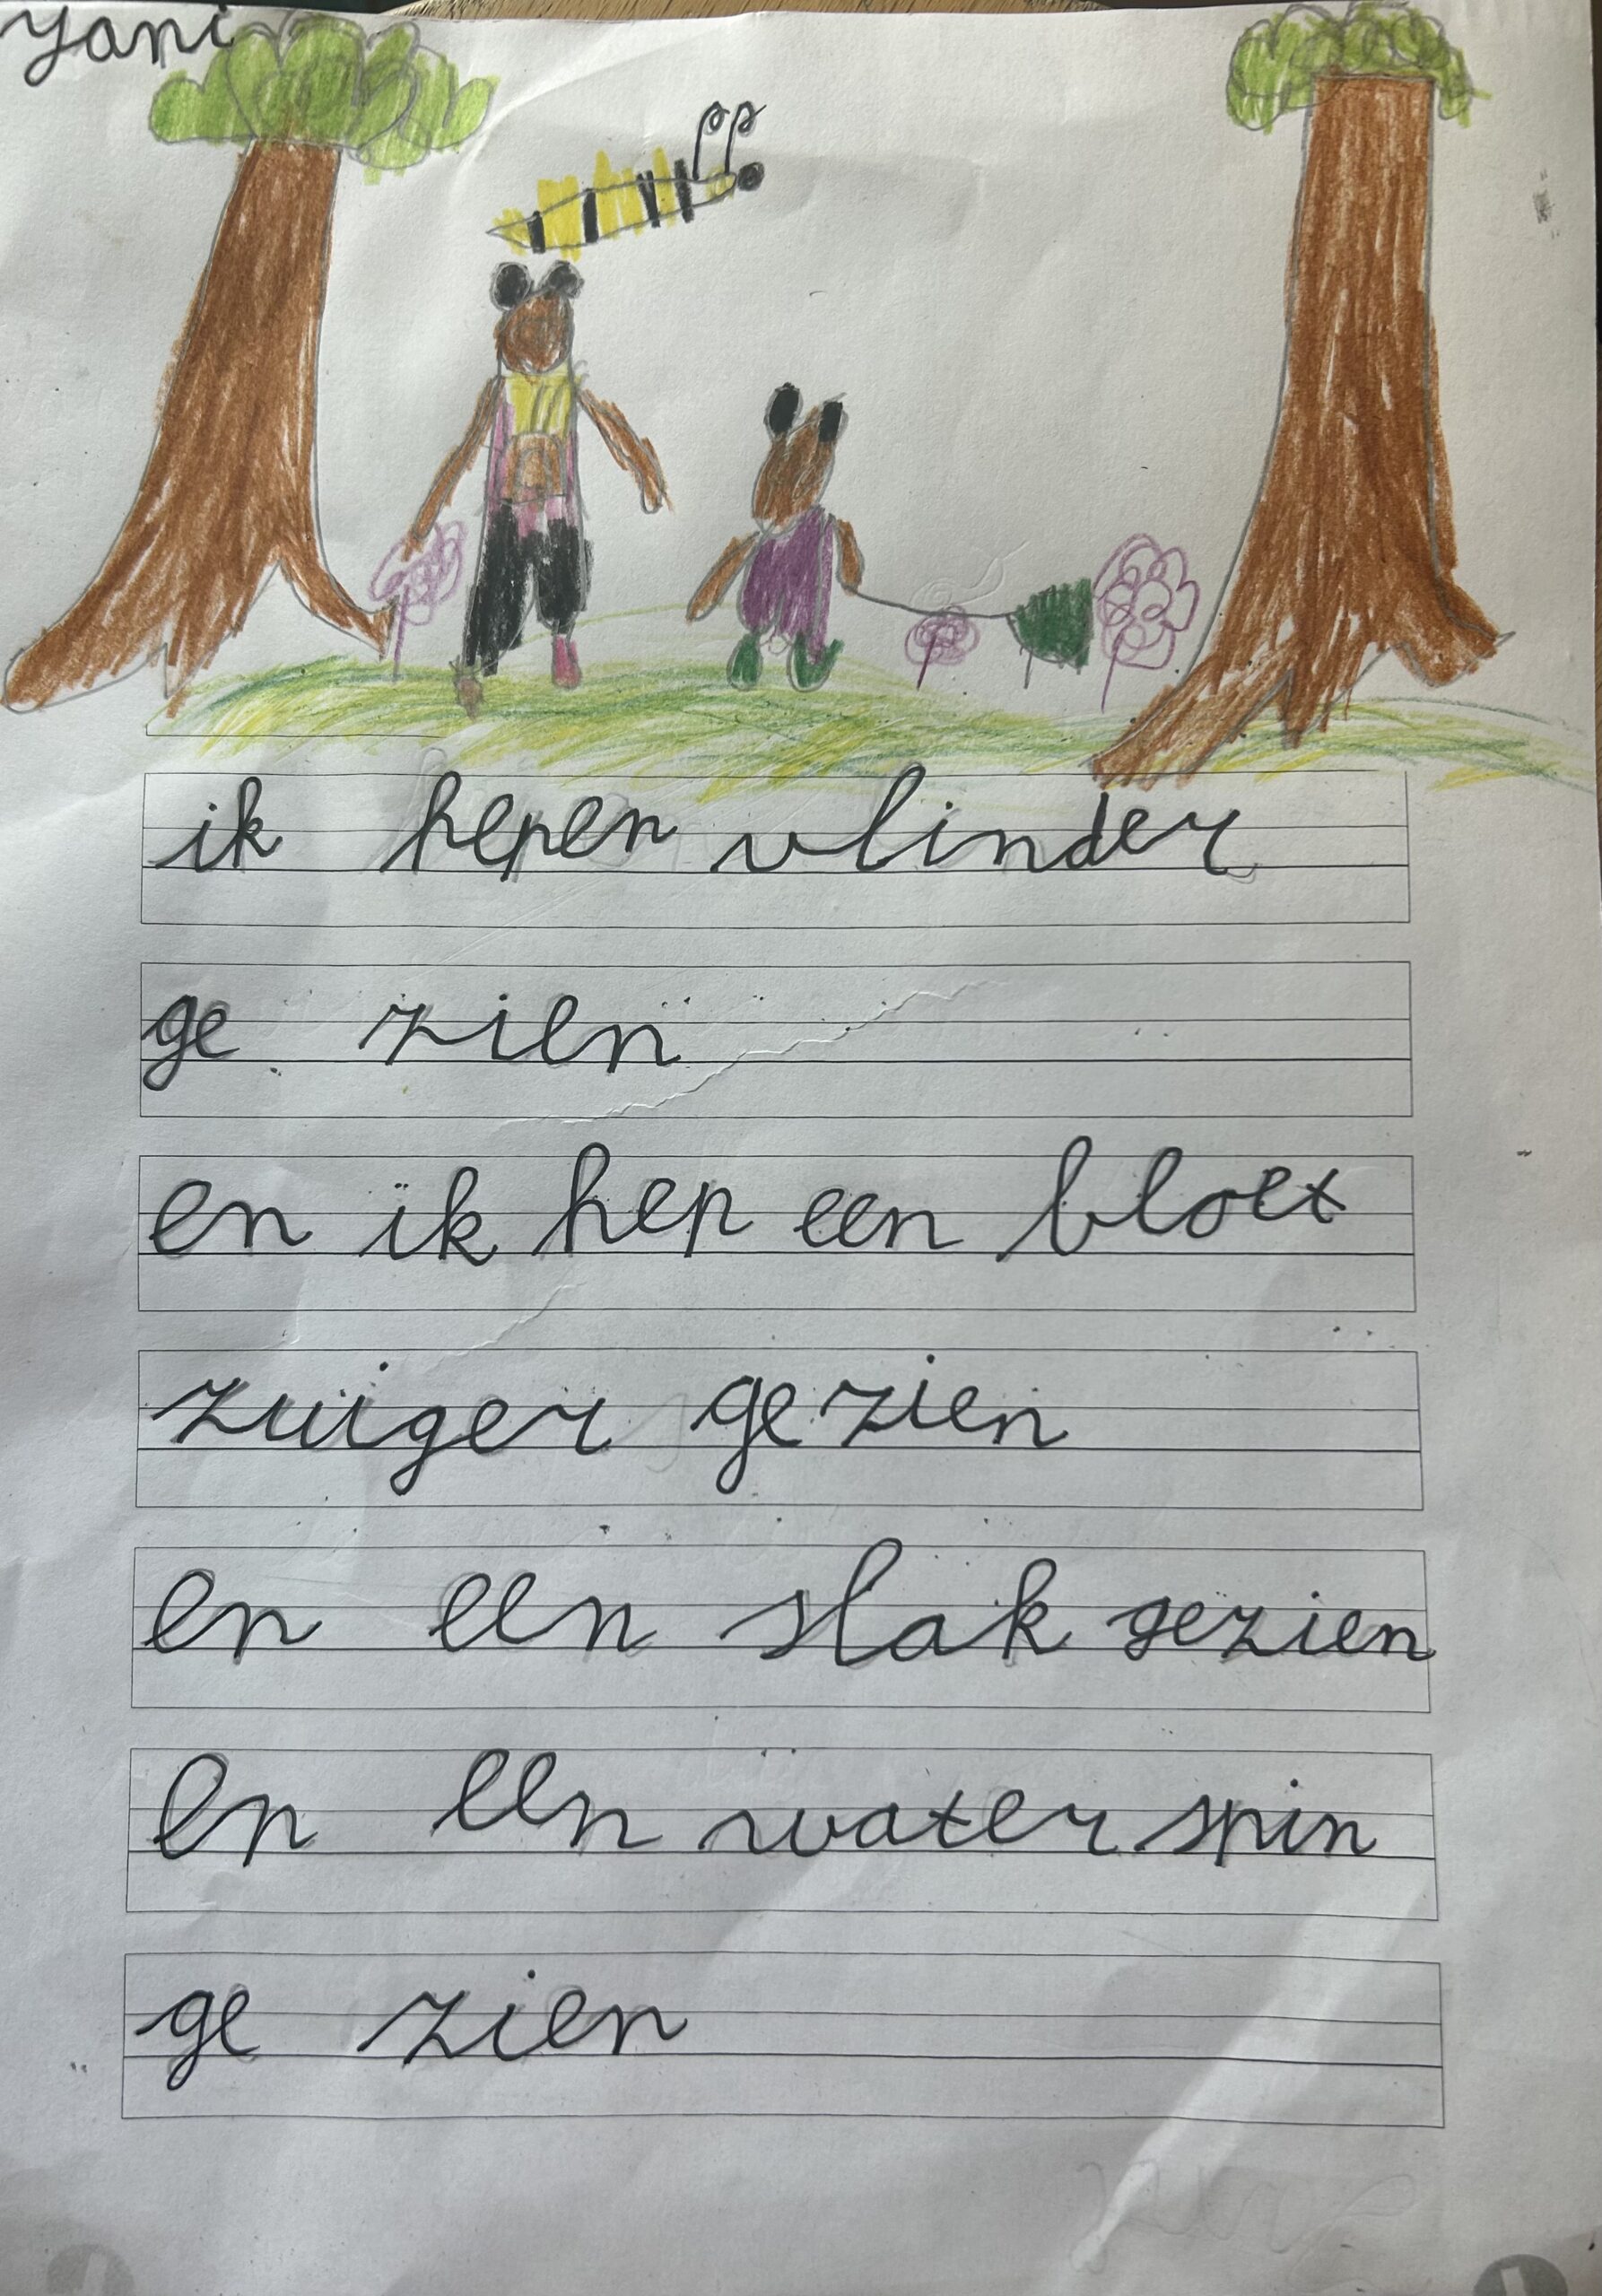 yani
ik hepen vlinder
ge zien
en ik hep een bloet
zuiger gezien
en een slak gezien
en een water spin
ge zien